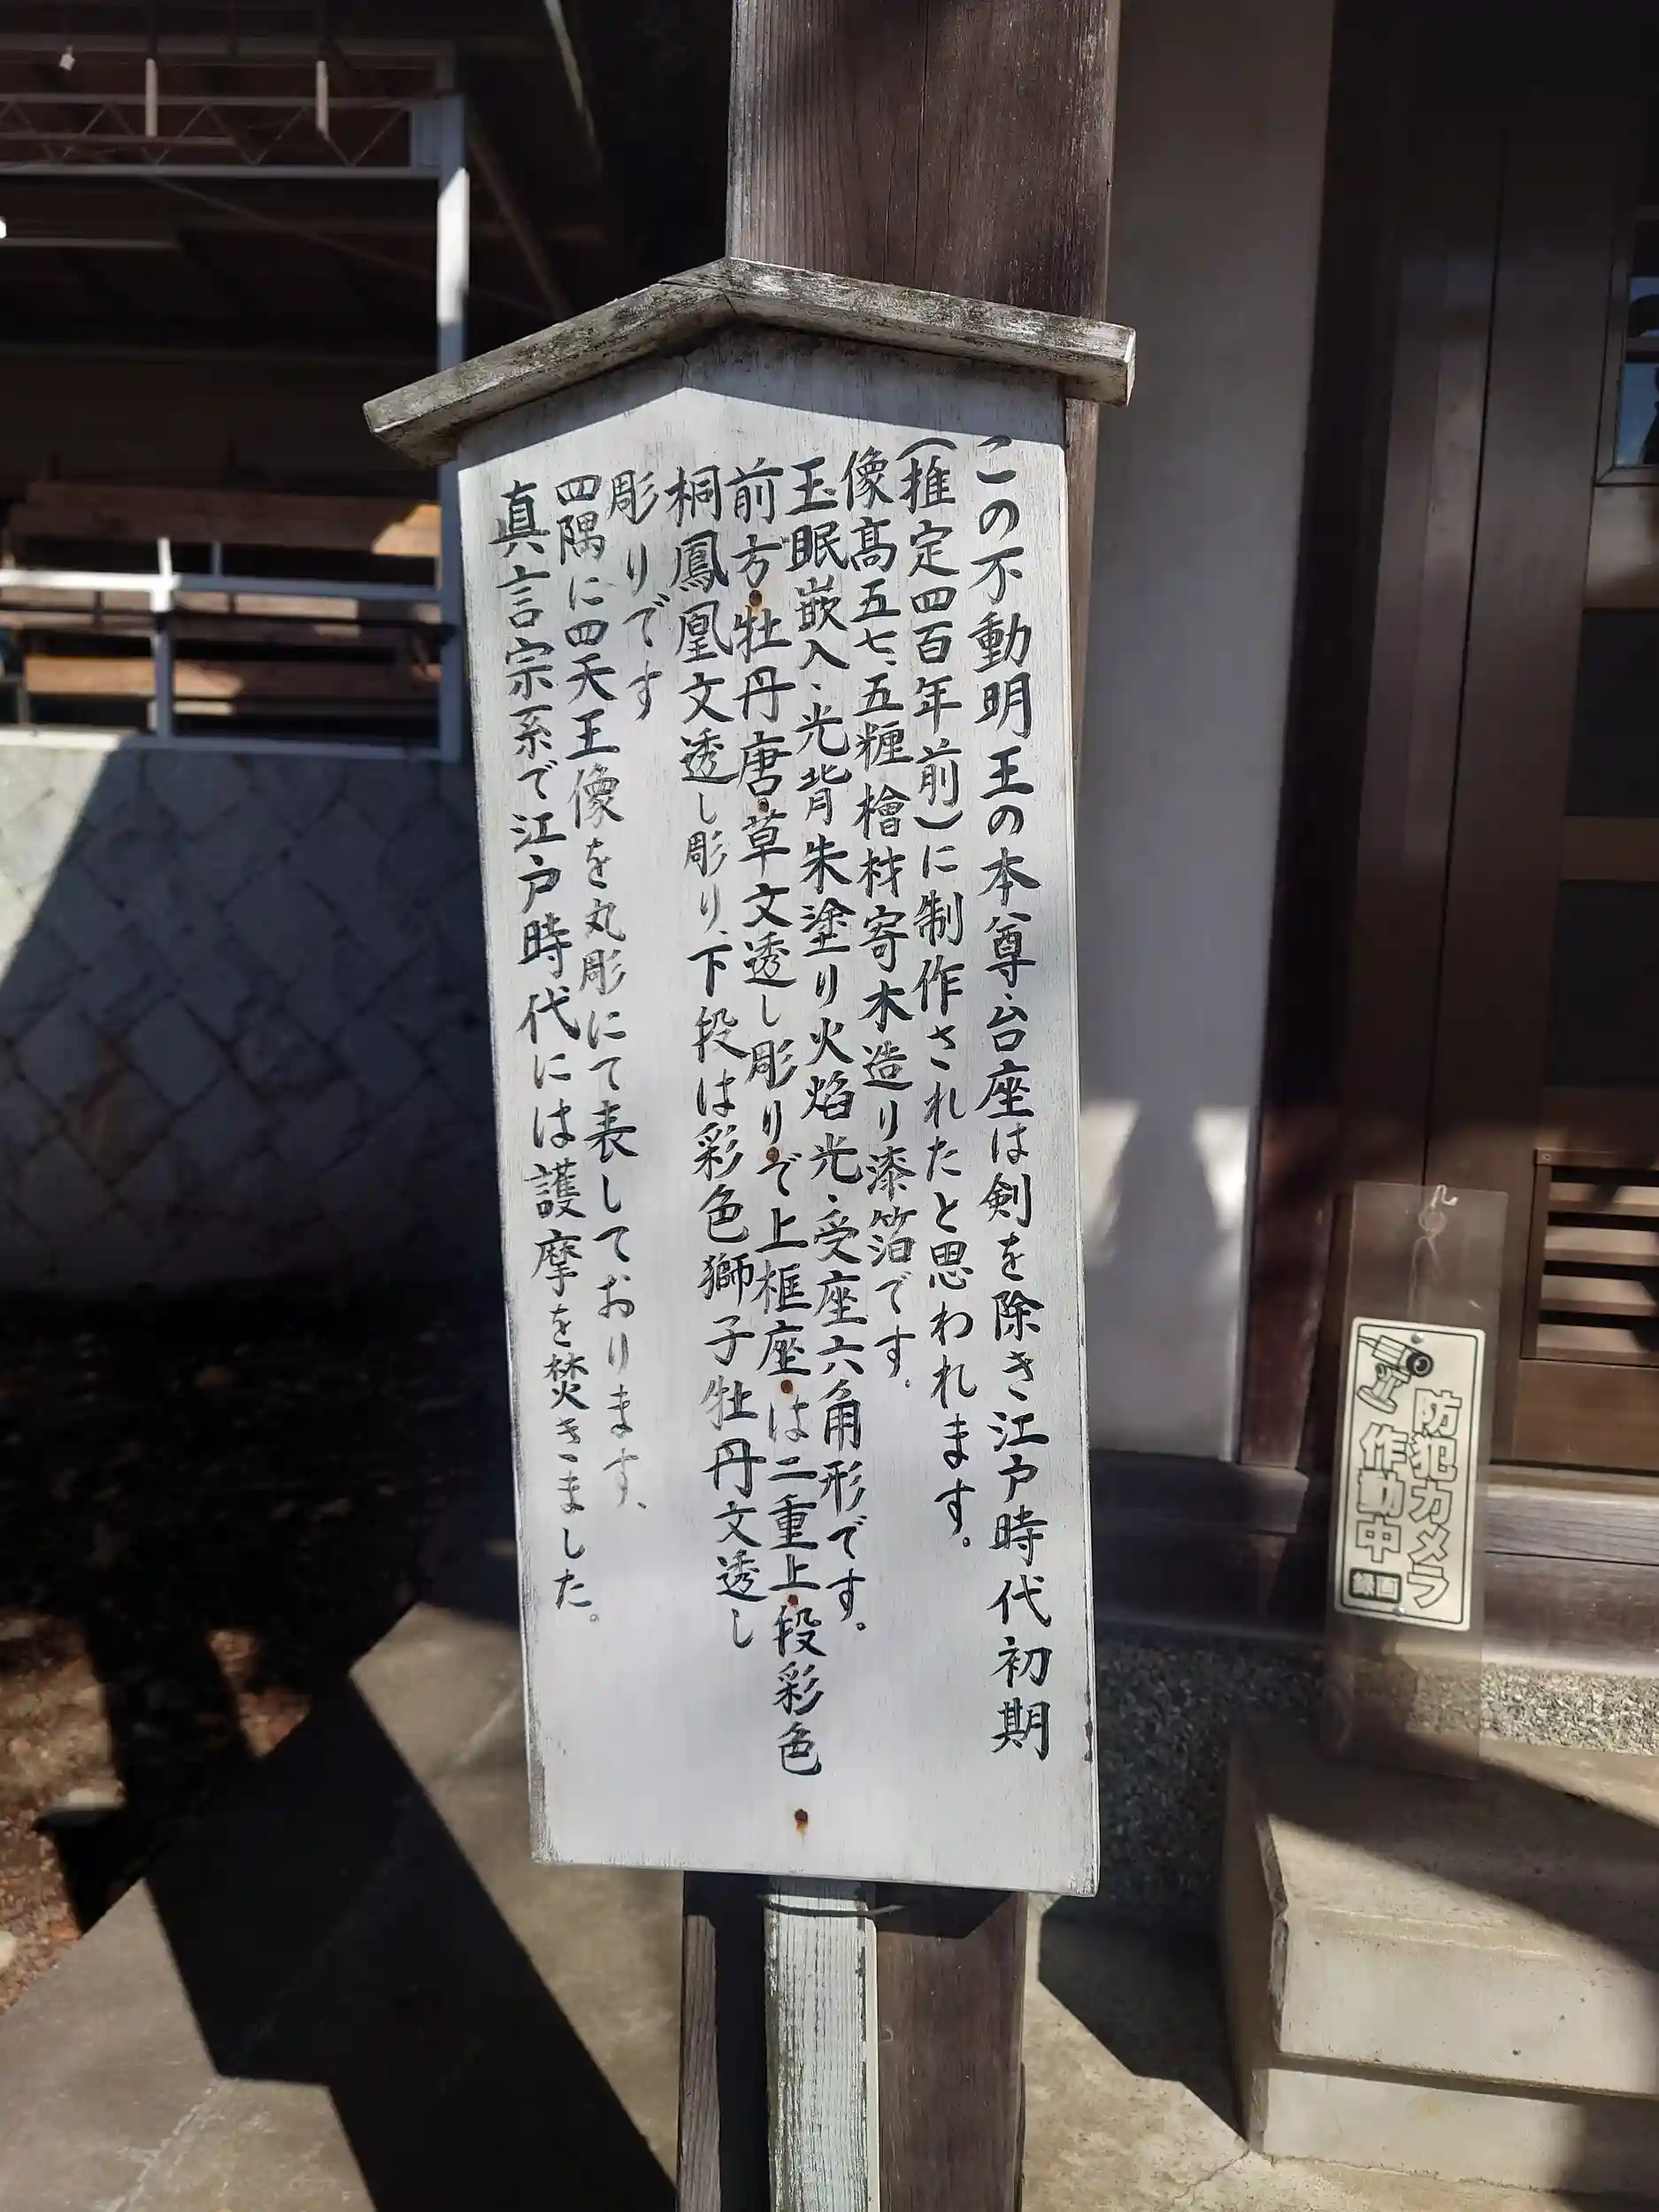 この不動明王の本尊・台座は剣を除き江戸時代初期
（推定四百年前）に制作されたと思われます。
像高五七、五糎檜材寄木造り漆箔です。
玉眼嵌入・光背朱塗り火焰光・受座六角形です。
前方・牡丹唐草文透し彫りで上框座は二重上段彩色
桐鳳凰文透し彫り、下段は彩色獅子牡丹文透し
彫りです
四隅に四天王像を丸彫にて表しております、
真言宗系で江戸時代には護摩を焚きました。
防犯カメラ
作動中
録画